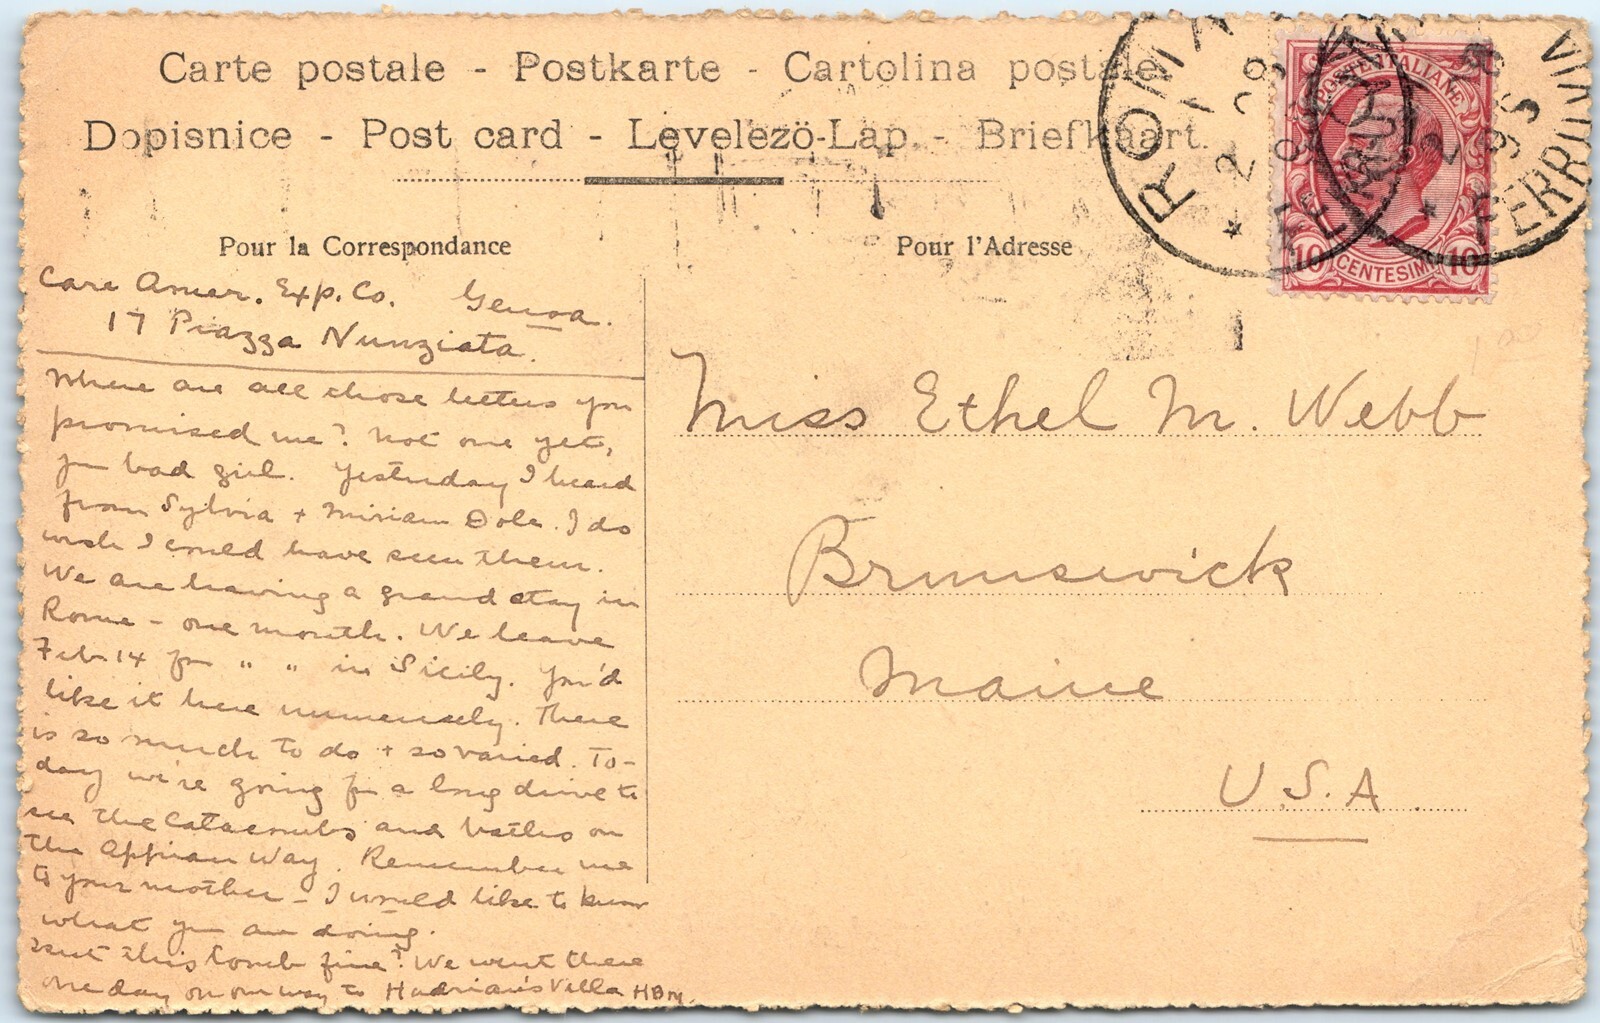 Carte postale - Postkarte - Cartolina postale
Dopisnice - Post card - Levelezö-Lap - Briefkaart.
Pour la Correspondance
Pour l'Adresse
ROMA
FERROVIA
POSTE ITALIANE
10 CENTESIMI 10
Care Amer. Exp. Co. Genoa.
17 Piazza Nunziata.
Where are all those letters you
promised me? Not one yet,
you bad girl. Yesterday I heard
from Sylvia + Miriam Dole. I do
wish I could have seen them.
We are having a grand stay in
Rome - one month. We leave
Feb 14 for " " in Sicily. You'd
like it here immensely. There
is so much to do + so varied. To-
day we're going for a long drive to
see the Catacombs and baths on
the Appian Way. Remember me
to your mother - I would like to know
what you are doing.
Isn't this tomb fine? We went there
one day on our way to Hadrian's Villa HBM.
Miss Ethel M. Webb
Brunswick
Maine
U.S.A.